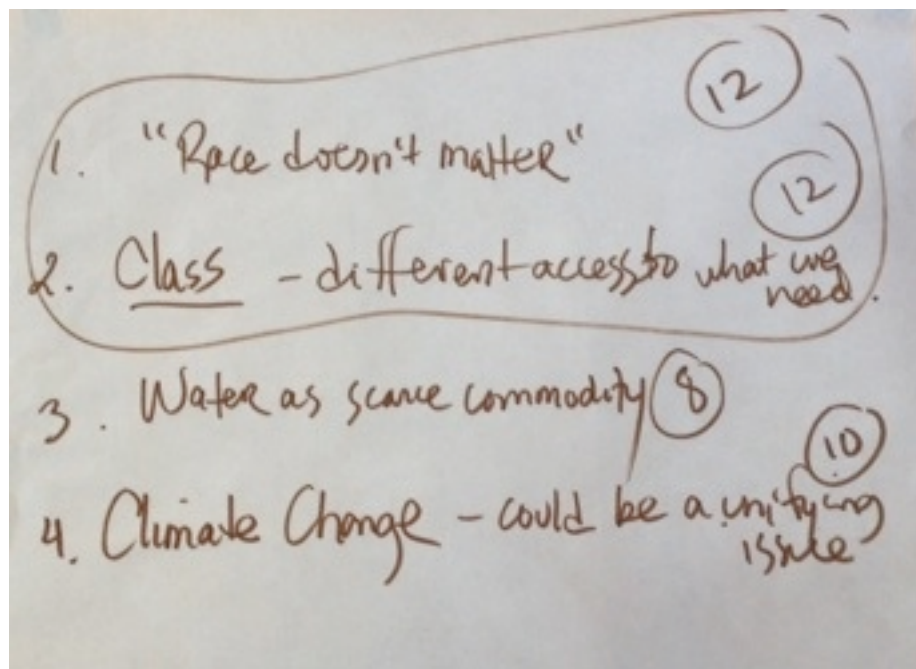 12
1. "Race doesn't matter"
12
2. Class - different access to what we
need.
3. Water as scarce commodity 8
10
4. Climate Change - could be a unifying
issue